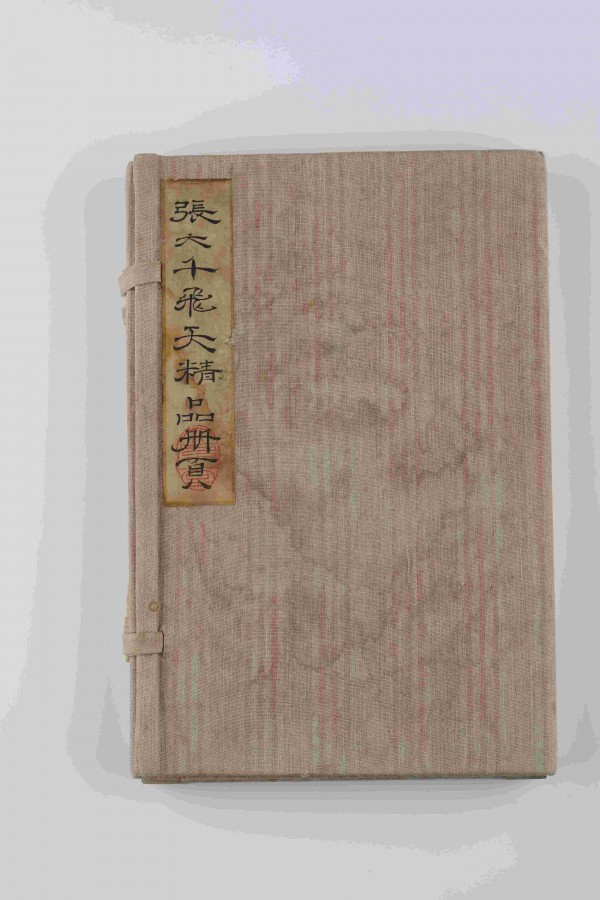 張大千飛天精品冊頁